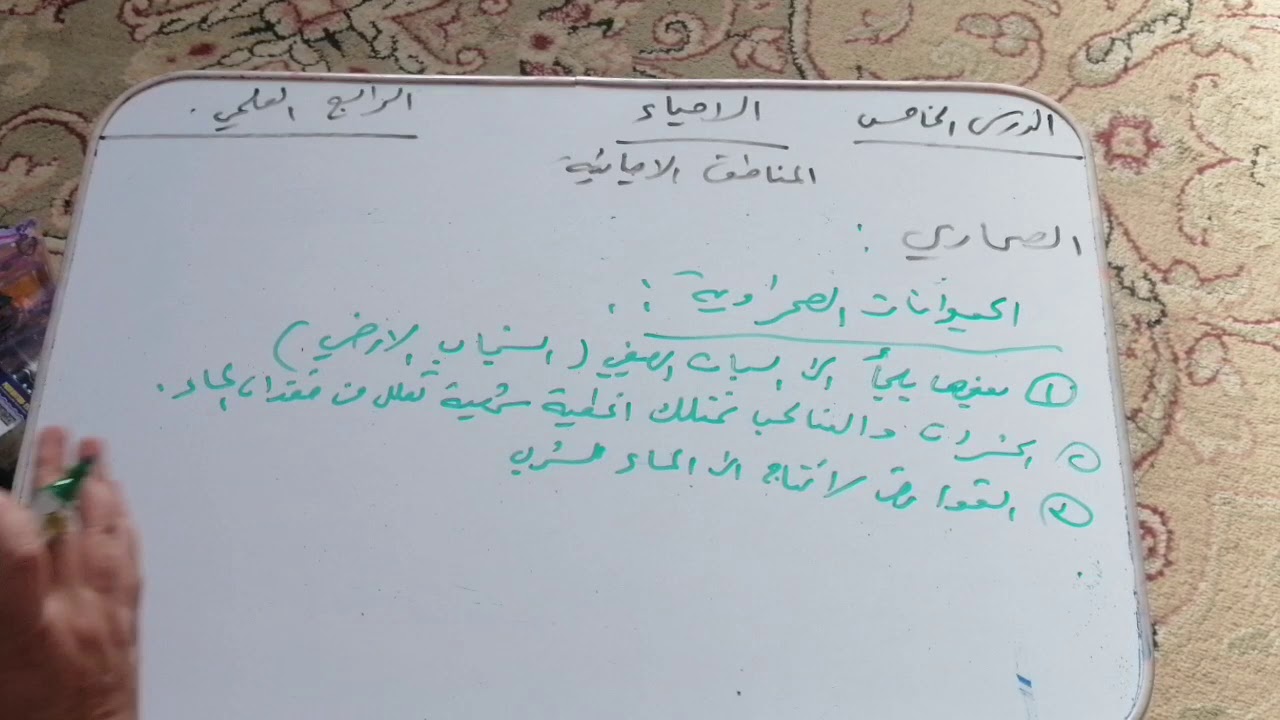 الدرس الخامس
الاحياء
الرابع العلمي .
المناطق الاحيائية
الصحاري :
الحيوانات الصحراوية : .
١ بعضها يلجأ الى السبات الصيفي ( السنجاب الارضي )
٢ الحشرات والعناكب تمتلك اغطية شمعية تقلل من فقدان الماء .
٣ القوارض لا تحتاج الى الماء للشرب